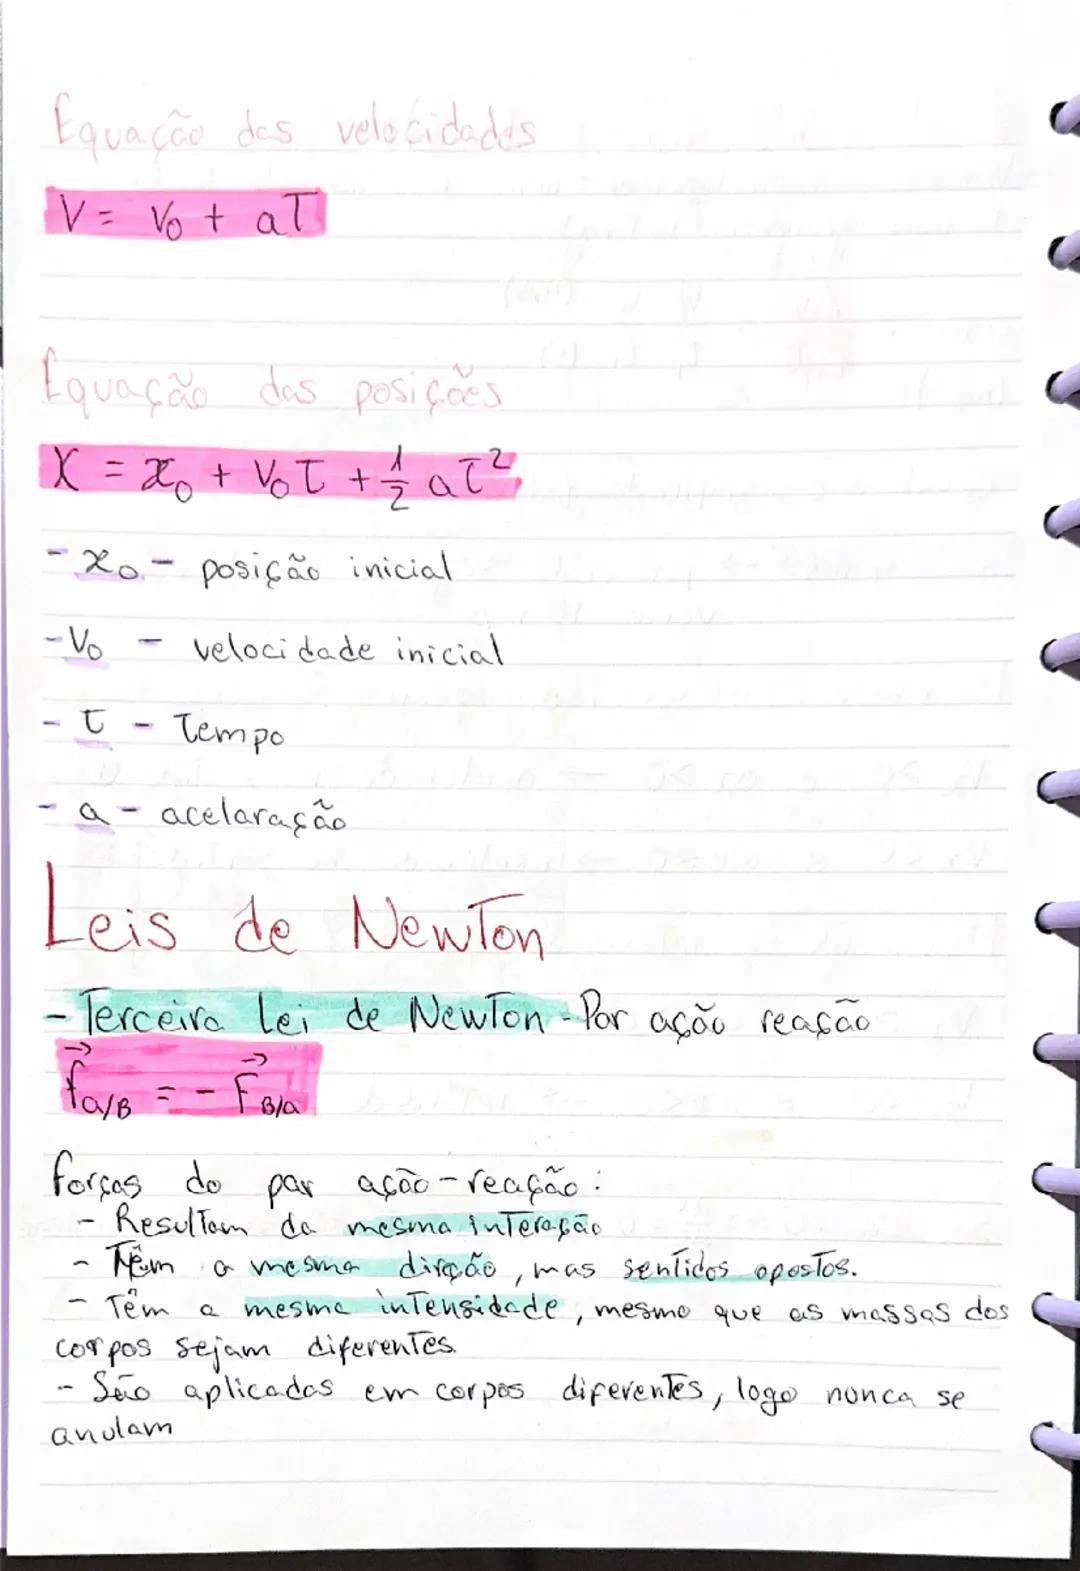 Equação das velocidades
V = V₀ + aT
Equação das posições
X = x₀ + V₀t + 1/2 at²
- x₀ - posição inicial
- V₀ - velocidade inicial
- t - Tempo
- a - acelaração
Leis de Newton
- Terceira Lei de Newton - Par ação reação
f⃗a/B = - F⃗B/a
forças do par ação-reação:
- Resultam da mesma interação
- Têm a mesma direção, mas sentidos opostos.
- Têm a mesma intensidade, mesmo que as massas dos
corpos sejam diferentes.
- São aplicadas em corpos diferentes, logo nunca se
anulam